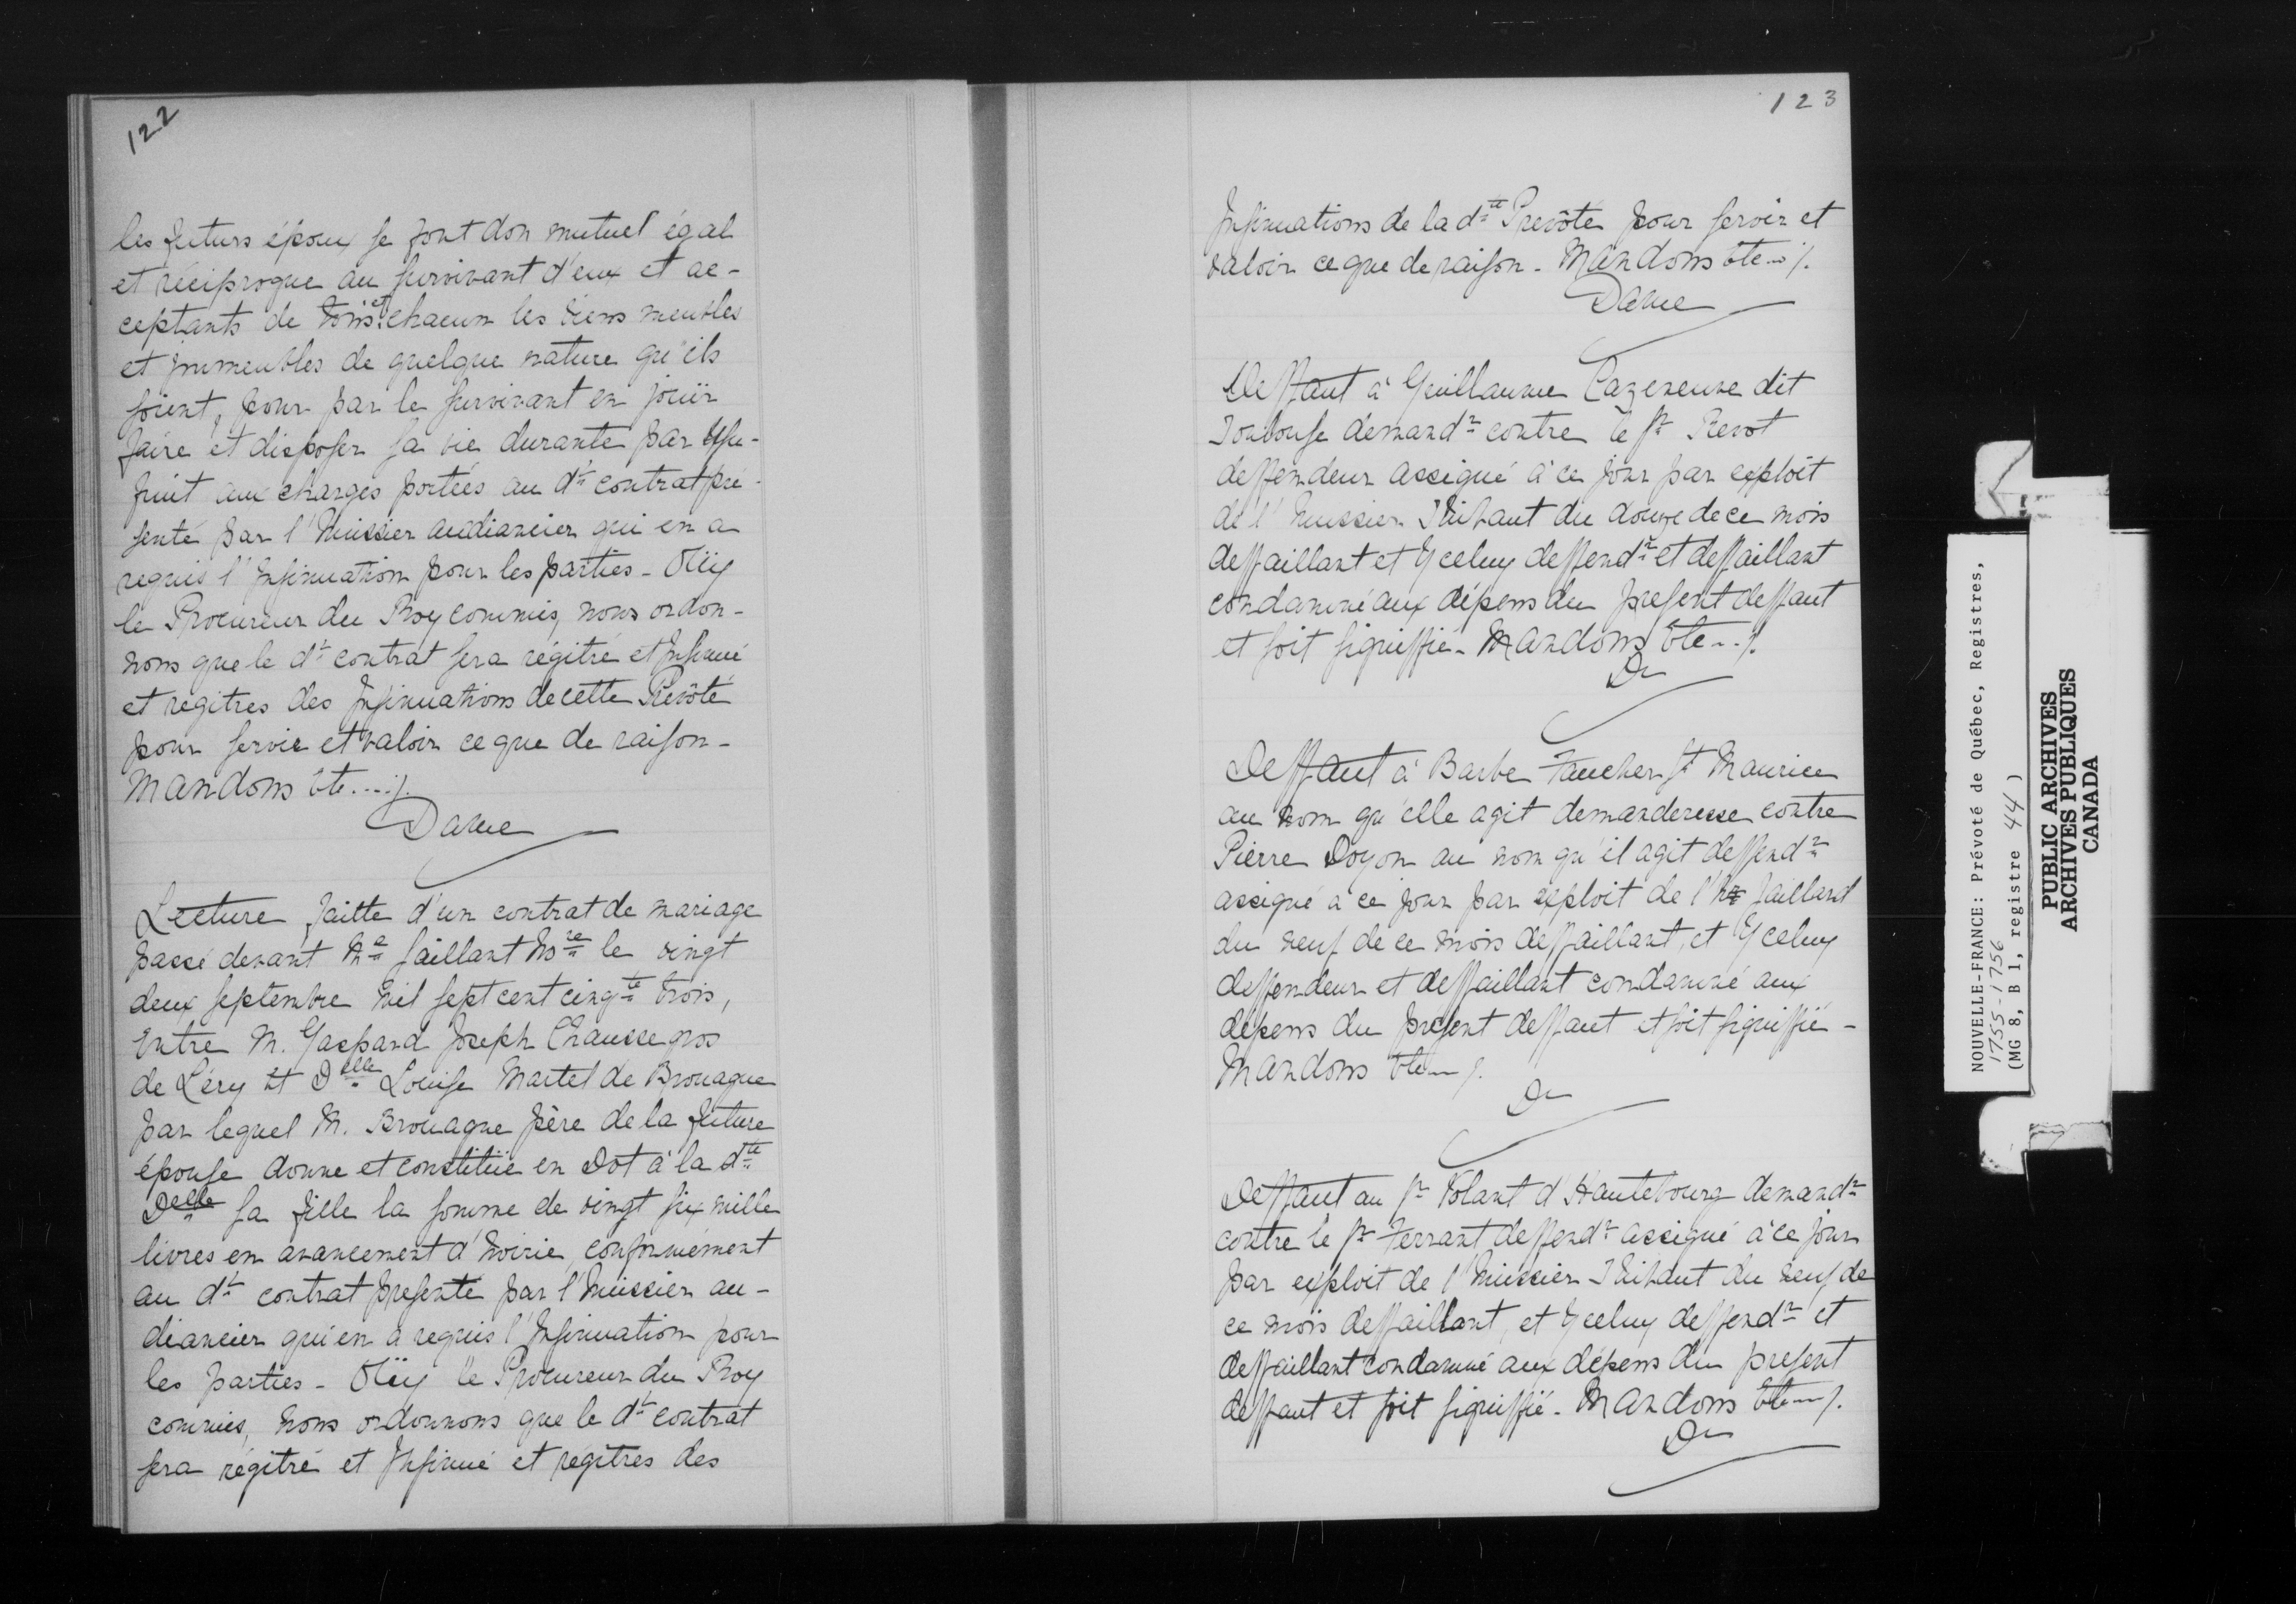 122
les futurs époux se font don mutuel égal
et réciproque au survivant d'eux et ac-
ceptants de tous et chacun les biens meubles
et immeubles de quelque nature qu'ils
soient, pour par le survivant en jouïr
faire et disposer sa vie durante par Usu-
fruit aux charges portées au dt contrat pré-
senté par l'huissier audiancier qui en a
requis l'Insinuation pour les parties - Oüy
le Procureur du Roy commis, nous ordon-
nons que le dt contrat sera régitré et Insinué
et regitres des Insinuations de cette Prevôté
pour servir et valoir ce que de raison -
Mandons Etc...%.
Daine
Lecture faitte d'un contrat de mariage
passé devant Me Saillant Nore le vingt
deux septembre mil sept cent cinqte trois,
Entre M. Gaspard Joseph Chaussegros
de Léry Et Delle Louise Martel de Brouague
par lequel M. Brouague père de la future
épouse donne et constitüe en Dot à la dte
Delle sa fille la somme de vingt six mille
livres en avancement d'hoirie, conformément
au dt contrat presenté par l'huissier au-
diancier qui en a requis l'Insinuation pour
les parties - Oüy le Procureur du Roy
commis, nous ordonnons que le dt contrat
sera régitré et Insinué et régitres des
123
Insinuations de la dte Prevôté pour servir et
valoir ce que de raison - Mandons Etc...%.
Daine
Deffaut à Guillaume Cazeneuve dit
Toulouse demandr contre le sr Prevot
deffendeur assigné à ce jour par exploit
de l'huissier Thibaut du douze de ce mois
deffaillant et Yceluy deffendr et deffaillant
condamné aux dépens du present deffaut
et soit signiffié - Mandons Etc...%.
Dn
Deffaut à Barbe Faucher St Maurice
au nom qu'elle agit demanderesse contre
Pierre Doyon au nom qu'il agit deffendr
assigné à ce jour par exploit de l'hr Jaillard
du neuf de ce mois deffaillant, et Yceluy
deffendeur et deffaillant condamné aux
dépens du present deffaut et soit signiffié -
Mandons Etc...%.
Dn
Deffaut au sr Volant d'Hautebourg demandr
contre le sr Ferrant deffendr assigné à ce jour
par exploit de l'huissier Thibaut du neuf de
ce mois deffaillant, et Yceluy deffendr et
deffaillant condamné aux dépens du present
deffaut et soit signiffié - Mandons Etc...%.
Dn
NOUVELLE-FRANCE: Prévoté de Québec, Registres,
1755-1756
(MG 8, B 1, registre 44)
PUBLIC ARCHIVES
ARCHIVES PUBLIQUES
CANADA